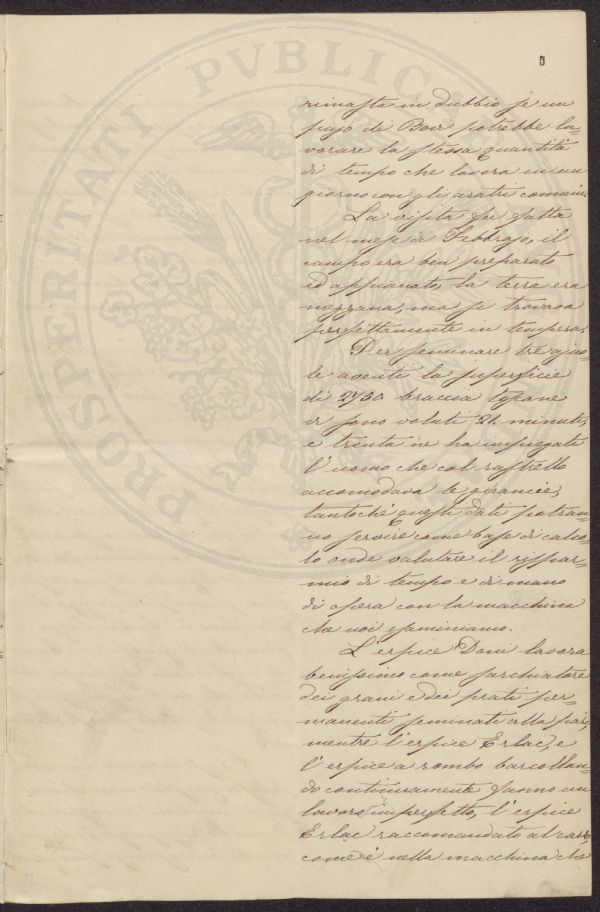 PROSPERITATI PVBLICAE
rimasta in dubbio se un
pajo di Bovi potrebbe la=
vorare la stessa quantità
di tempo che lavora in un
giorno con gli aratri comuni.
La visita fu fatta
nel mese di Febbrajo, il
campo era ben preparato
ed appianato, la terra era
mezzana, ma si trovava
perfettamente in tempera.
Per seminare tre ajuo=
le aventi la superficie
di 2750 braccia tosane
vi sono voluti 21 minuti,
e trenta ne ha impiegati
l'uomo che col rastrello
accomodava le
tantochè questi dati potran=
no servire come base di calco=
lo onde valutare il rispar=
mio di tempo e di mano
di opera con la macchina
che noi esaminiamo.
L'erpice Doni lavora
benissimo come sarchiatore
dei grani e dei prati per=
manenti seminati alla pari,
mentre l'erpice Erlac, e
l'erpice a rombo barcollan=
do continuamente fanno un
lavoro imperfetto, l'erpice
Erlac raccomandato al carro,
come è nella macchina che